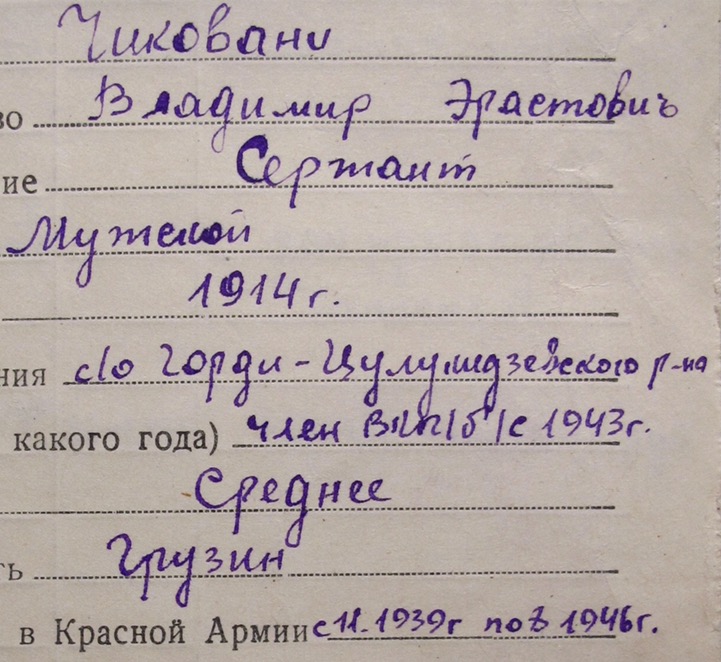 Чиковани
во Владимир Эрастович
ие Сержант
Мужской
1914 г.
ния с/о Горди - Цулукидзевского р-на
какого года) член ВКП/б/с 1943г.
Среднее
ть Грузин
в Красной Армии с 11.1939г по 1946г.